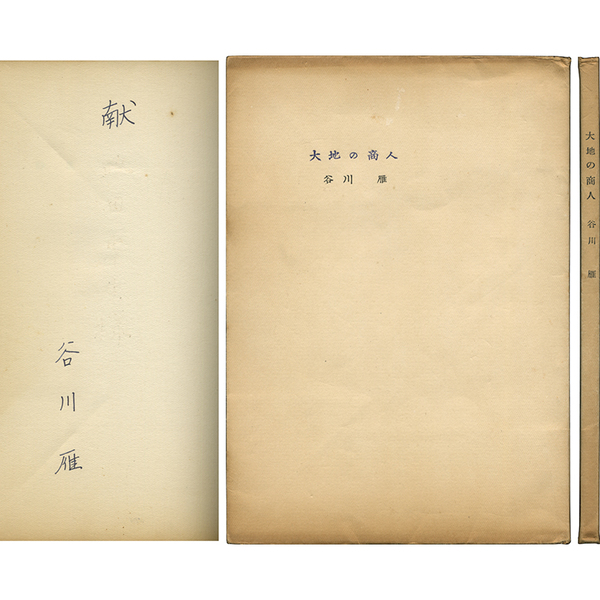 献
谷川雁
大地の商人
谷川 雁
大地の商人 谷川 雁